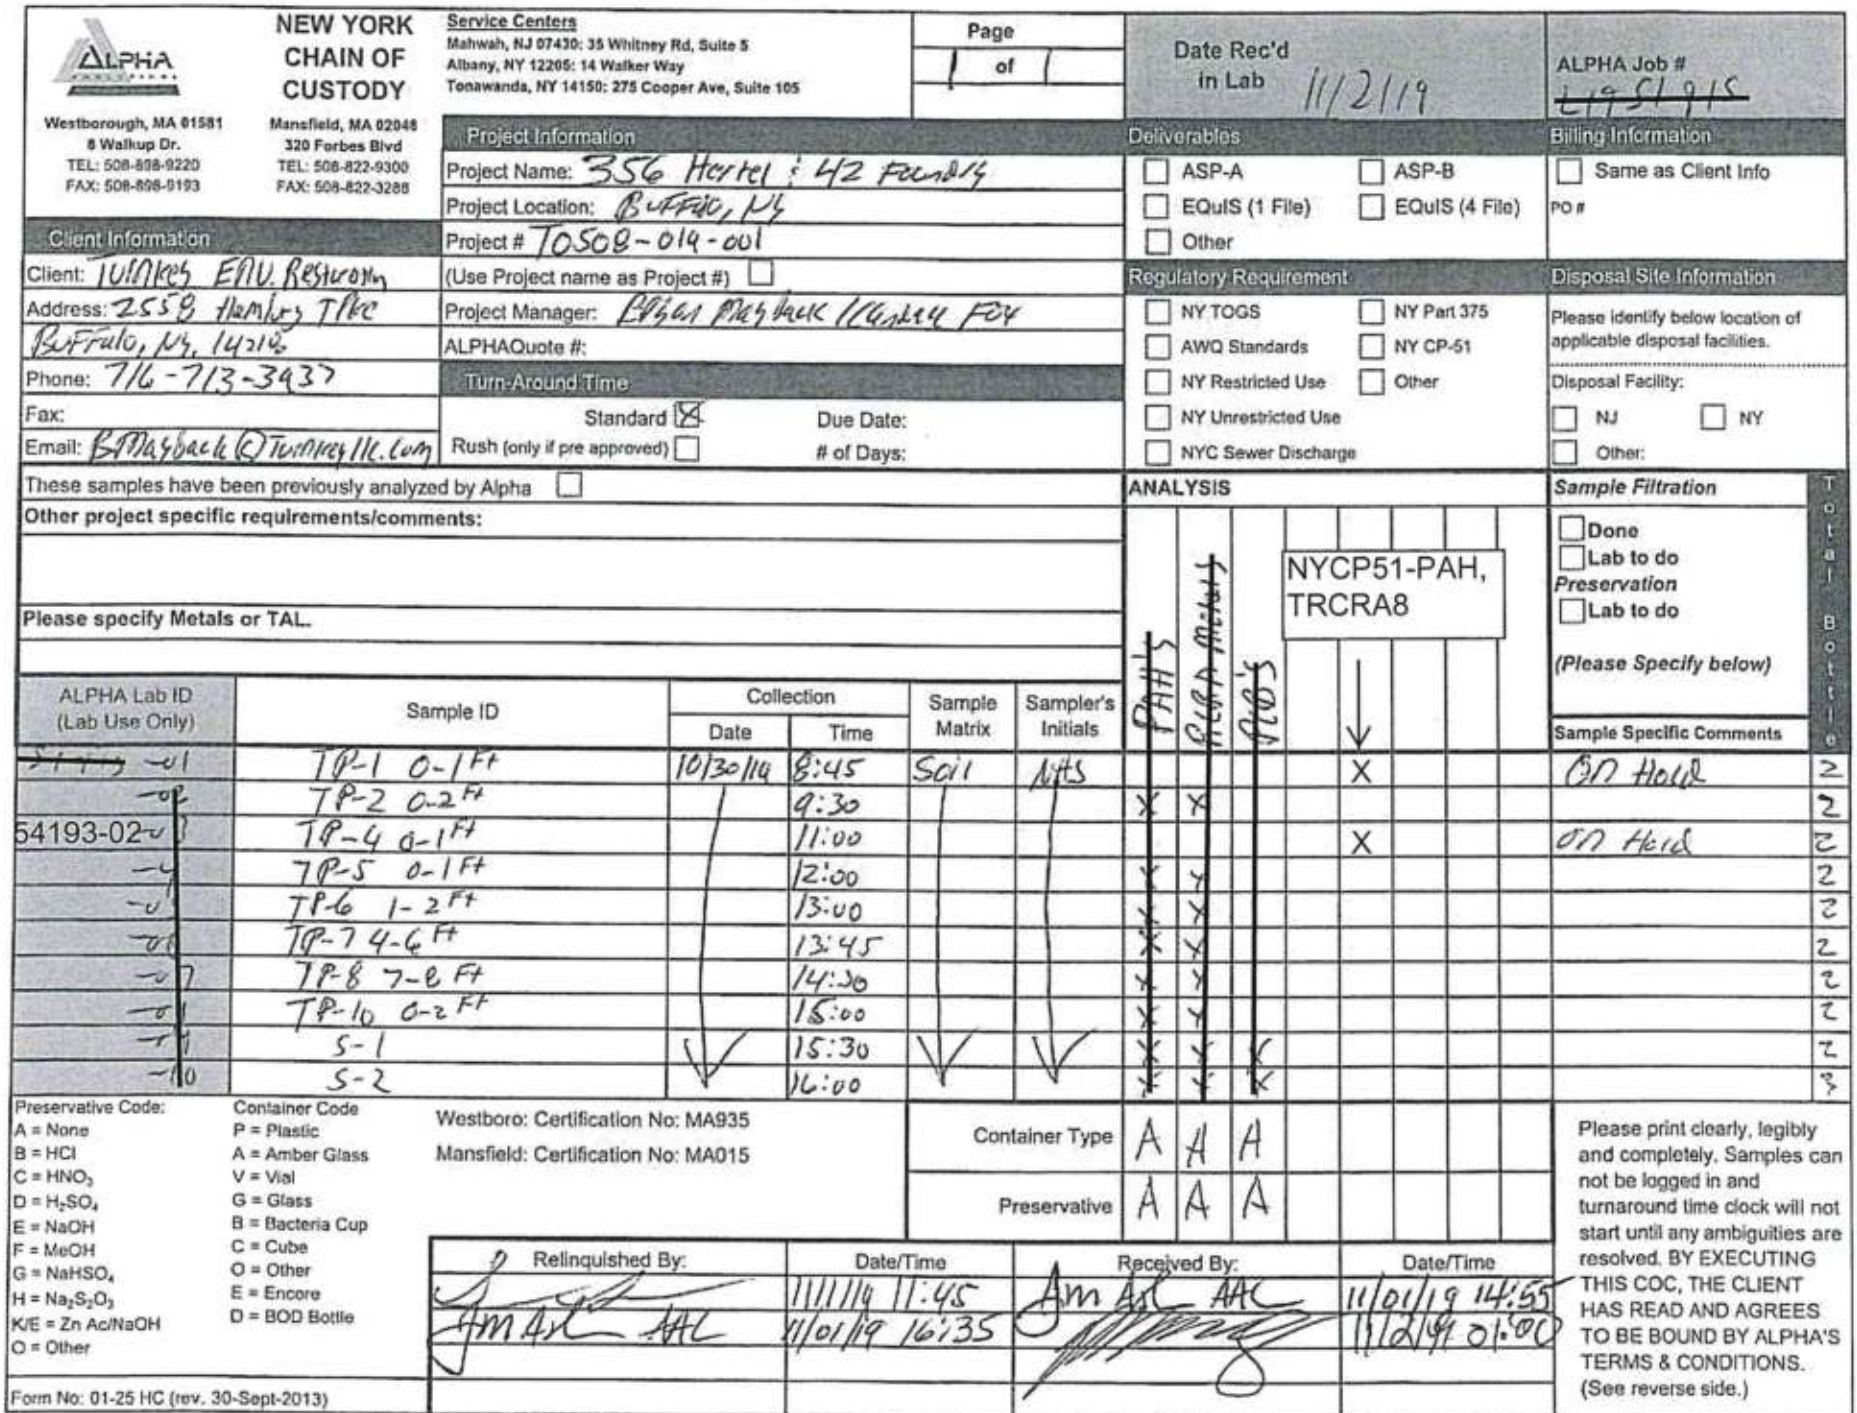 ALPHA
ANALYTICAL
Westborough, MA 01581
8 Walkup Dr.
TEL: 508-898-9220
FAX: 508-898-9193
NEW YORK
CHAIN OF
CUSTODY
Mansfield, MA 02048
320 Forbes Blvd
TEL: 508-822-9300
FAX: 508-822-3288
Service Centers
Mahwah, NJ 07430: 35 Whitney Rd, Suite 5
Albany, NY 12205: 14 Walker Way
Tonawanda, NY 14150: 275 Cooper Ave, Suite 105
Page
1 of 1
Date Rec'd
in Lab 11/2/19
ALPHA Job #
L1951915
Client Information
Client: Turnkey ENV. Restoration
Address: 2558 Hamburg TPKe
Buffalo, NY, 14218
Phone: 716-713-3937
Fax:
Email: BMayback@Turnkeyllc.com
Project Information
Project Name: 356 Hertel & 42 Foundry
Project Location: Buffalo, NY
Project # T0508-019-001
(Use Project name as Project #)
Project Manager: Bryan Mayback / Fox
ALPHAQuote #:
Turn-Around Time
Standard X Due Date:
Rush (only if pre approved) # of Days:
Deliverables
ASP-A ASP-B
EQuIS (1 File) EQuIS (4 File)
Other
Regulatory Requirement
NY TOGS NY Part 375
AWQ Standards NY CP-51
NY Restricted Use Other
NY Unrestricted Use
NYC Sewer Discharge
Billing Information
Same as Client Info
PO #
Disposal Site Information
Please identify below location of
applicable disposal facilities.
Disposal Facility:
NJ NY
Other:
These samples have been previously analyzed by Alpha
Other project specific requirements/comments:
Please specify Metals or TAL.
ANALYSIS
PAH's
RCRA Metals
PCB's
NYCP51-PAH,
TRCRA8
Sample Filtration
Done
Lab to do
Preservation
Lab to do
(Please Specify below)
Total Bottle
ALPHA Lab ID
(Lab Use Only)
Sample ID
Collection
Date Time
Sample
Matrix
Sampler's
Initials
Sample Specific Comments
-01 TP-1 0-1 Ft 10/30/19 8:45 Soil NAS X On Hold 2
-02 TP-2 0-2 Ft 9:30 X X 2
54193-02 TP-4 0-1 Ft 11:00 X On Hold 2
-4 TP-5 0-1 Ft 12:00 X X 2
TP-6 1-2 Ft 13:00 X X 2
TP-7 4-6 Ft 13:45 X X 2
-07 TP-8 7-8 Ft 14:30 X X 2
TP-10 0-2 Ft 15:00 X X 2
S-1 15:30 X X X 2
-10 S-2 16:00 X X X 3
Preservative Code:
A = None
B = HCl
C = HNO₃
D = H₂SO₄
E = NaOH
F = MeOH
G = NaHSO₄
H = Na₂S₂O₃
K/E = Zn Ac/NaOH
O = Other
Container Code
P = Plastic
A = Amber Glass
V = Vial
G = Glass
B = Bacteria Cup
C = Cube
O = Other
E = Encore
D = BOD Bottle
Westboro: Certification No: MA935
Mansfield: Certification No: MA015
Container Type A A A
Preservative A A A
Relinquished By: Date/Time Received By: Date/Time
11/1/19 11:45 AAL 11/01/19 14:55
AAL 11/01/19 16:35 01:00
Please print clearly, legibly
and completely. Samples can
not be logged in and
turnaround time clock will not
start until any ambiguities are
resolved. BY EXECUTING
THIS COC, THE CLIENT
HAS READ AND AGREES
TO BE BOUND BY ALPHA'S
TERMS & CONDITIONS.
(See reverse side.)
Form No: 01-25 HC (rev. 30-Sept-2013)